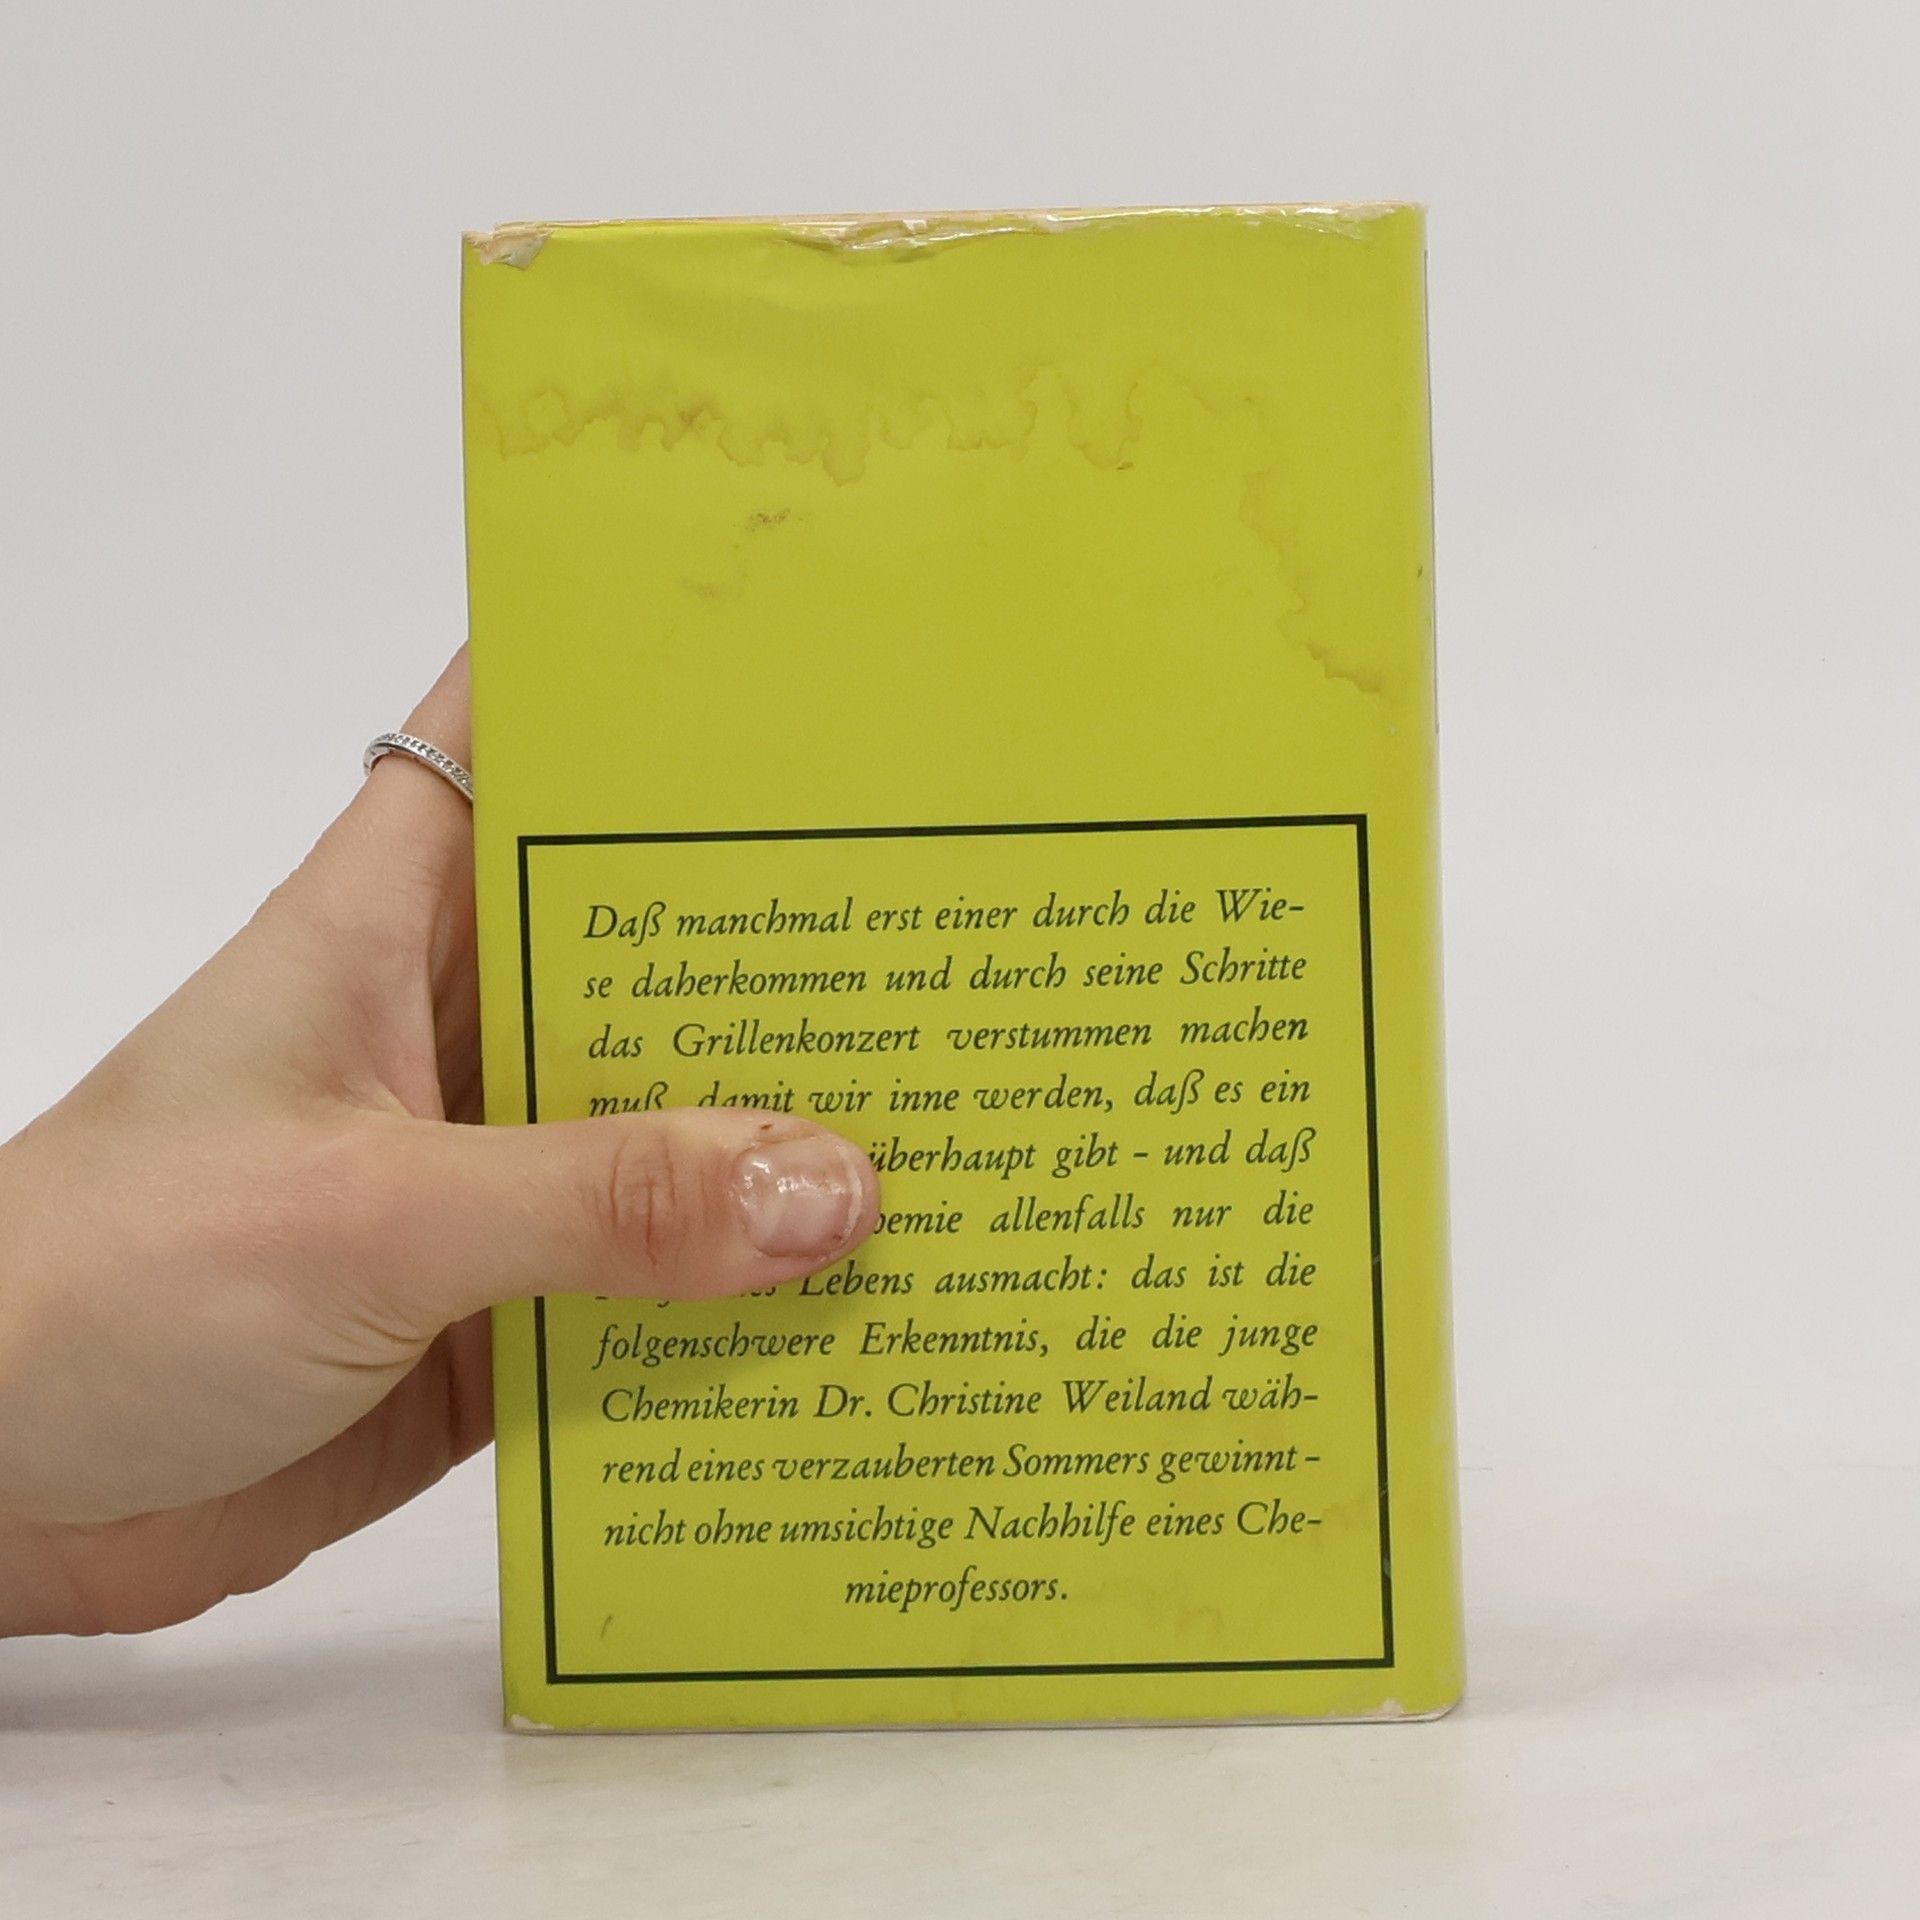 Daß manchmal erst einer durch die Wie-
se daherkommen und durch seine Schritte
das Grillenkonzert verstummen machen
muß, damit wir inne werden, daß es ein
überhaupt gibt - und daß
allenfalls nur die
Lebens ausmacht: das ist die
folgenschwere Erkenntnis, die die junge
Chemikerin Dr. Christine Weiland wäh-
rend eines verzauberten Sommers gewinnt -
nicht ohne umsichtige Nachhilfe eines Che-
mieprofessors.